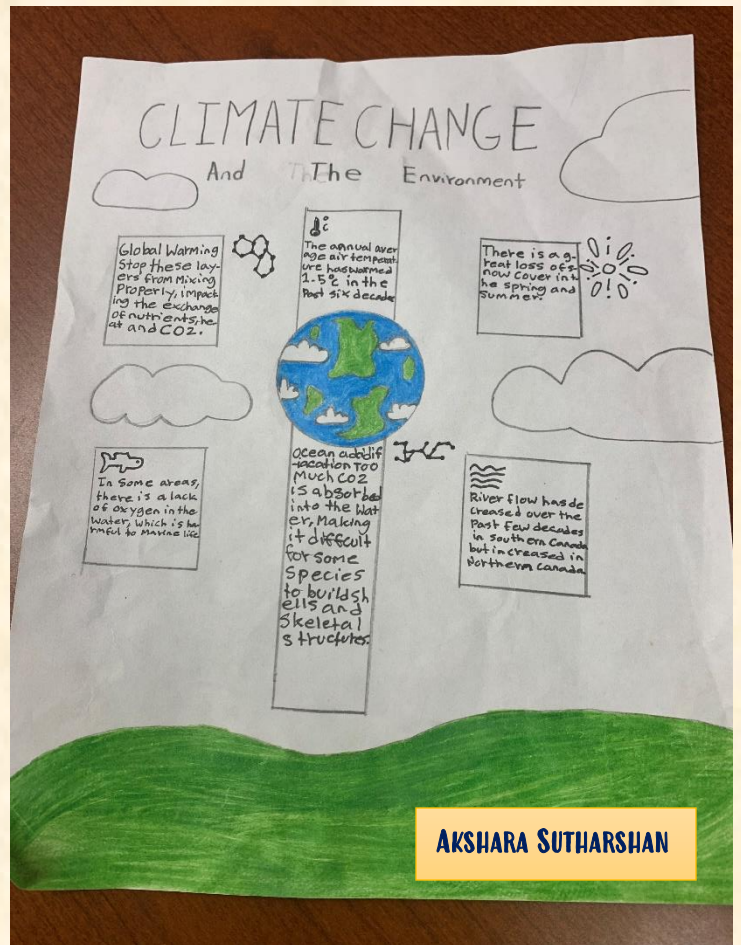 CLIMATE CHANGE
And The The Environment
Global Warming
Stop these lay-
ers from Mixing
Properly, impact
ing the exchange
of nutrients, he-
at and CO2.
°c
The annual aver
age air temperat
ure has warmed
1.5°c in the
Past six decades
There is a g-
reat loss of s-
now cover in t
he spring and
summer.
In some areas,
there is a lack
of oxygen in the
water, which is ha
rmful to Marine life
Ocean
Too
Much CO2
is absorbed
into the Wat
er, Making
it difficult
for some
Species
to build sh
ells and
Skeletal
structures.
River flow has de
creased over the
Past few decades
in southern Canada
but increased in
Northern Canada
AKSHARA SUTHARSHAN